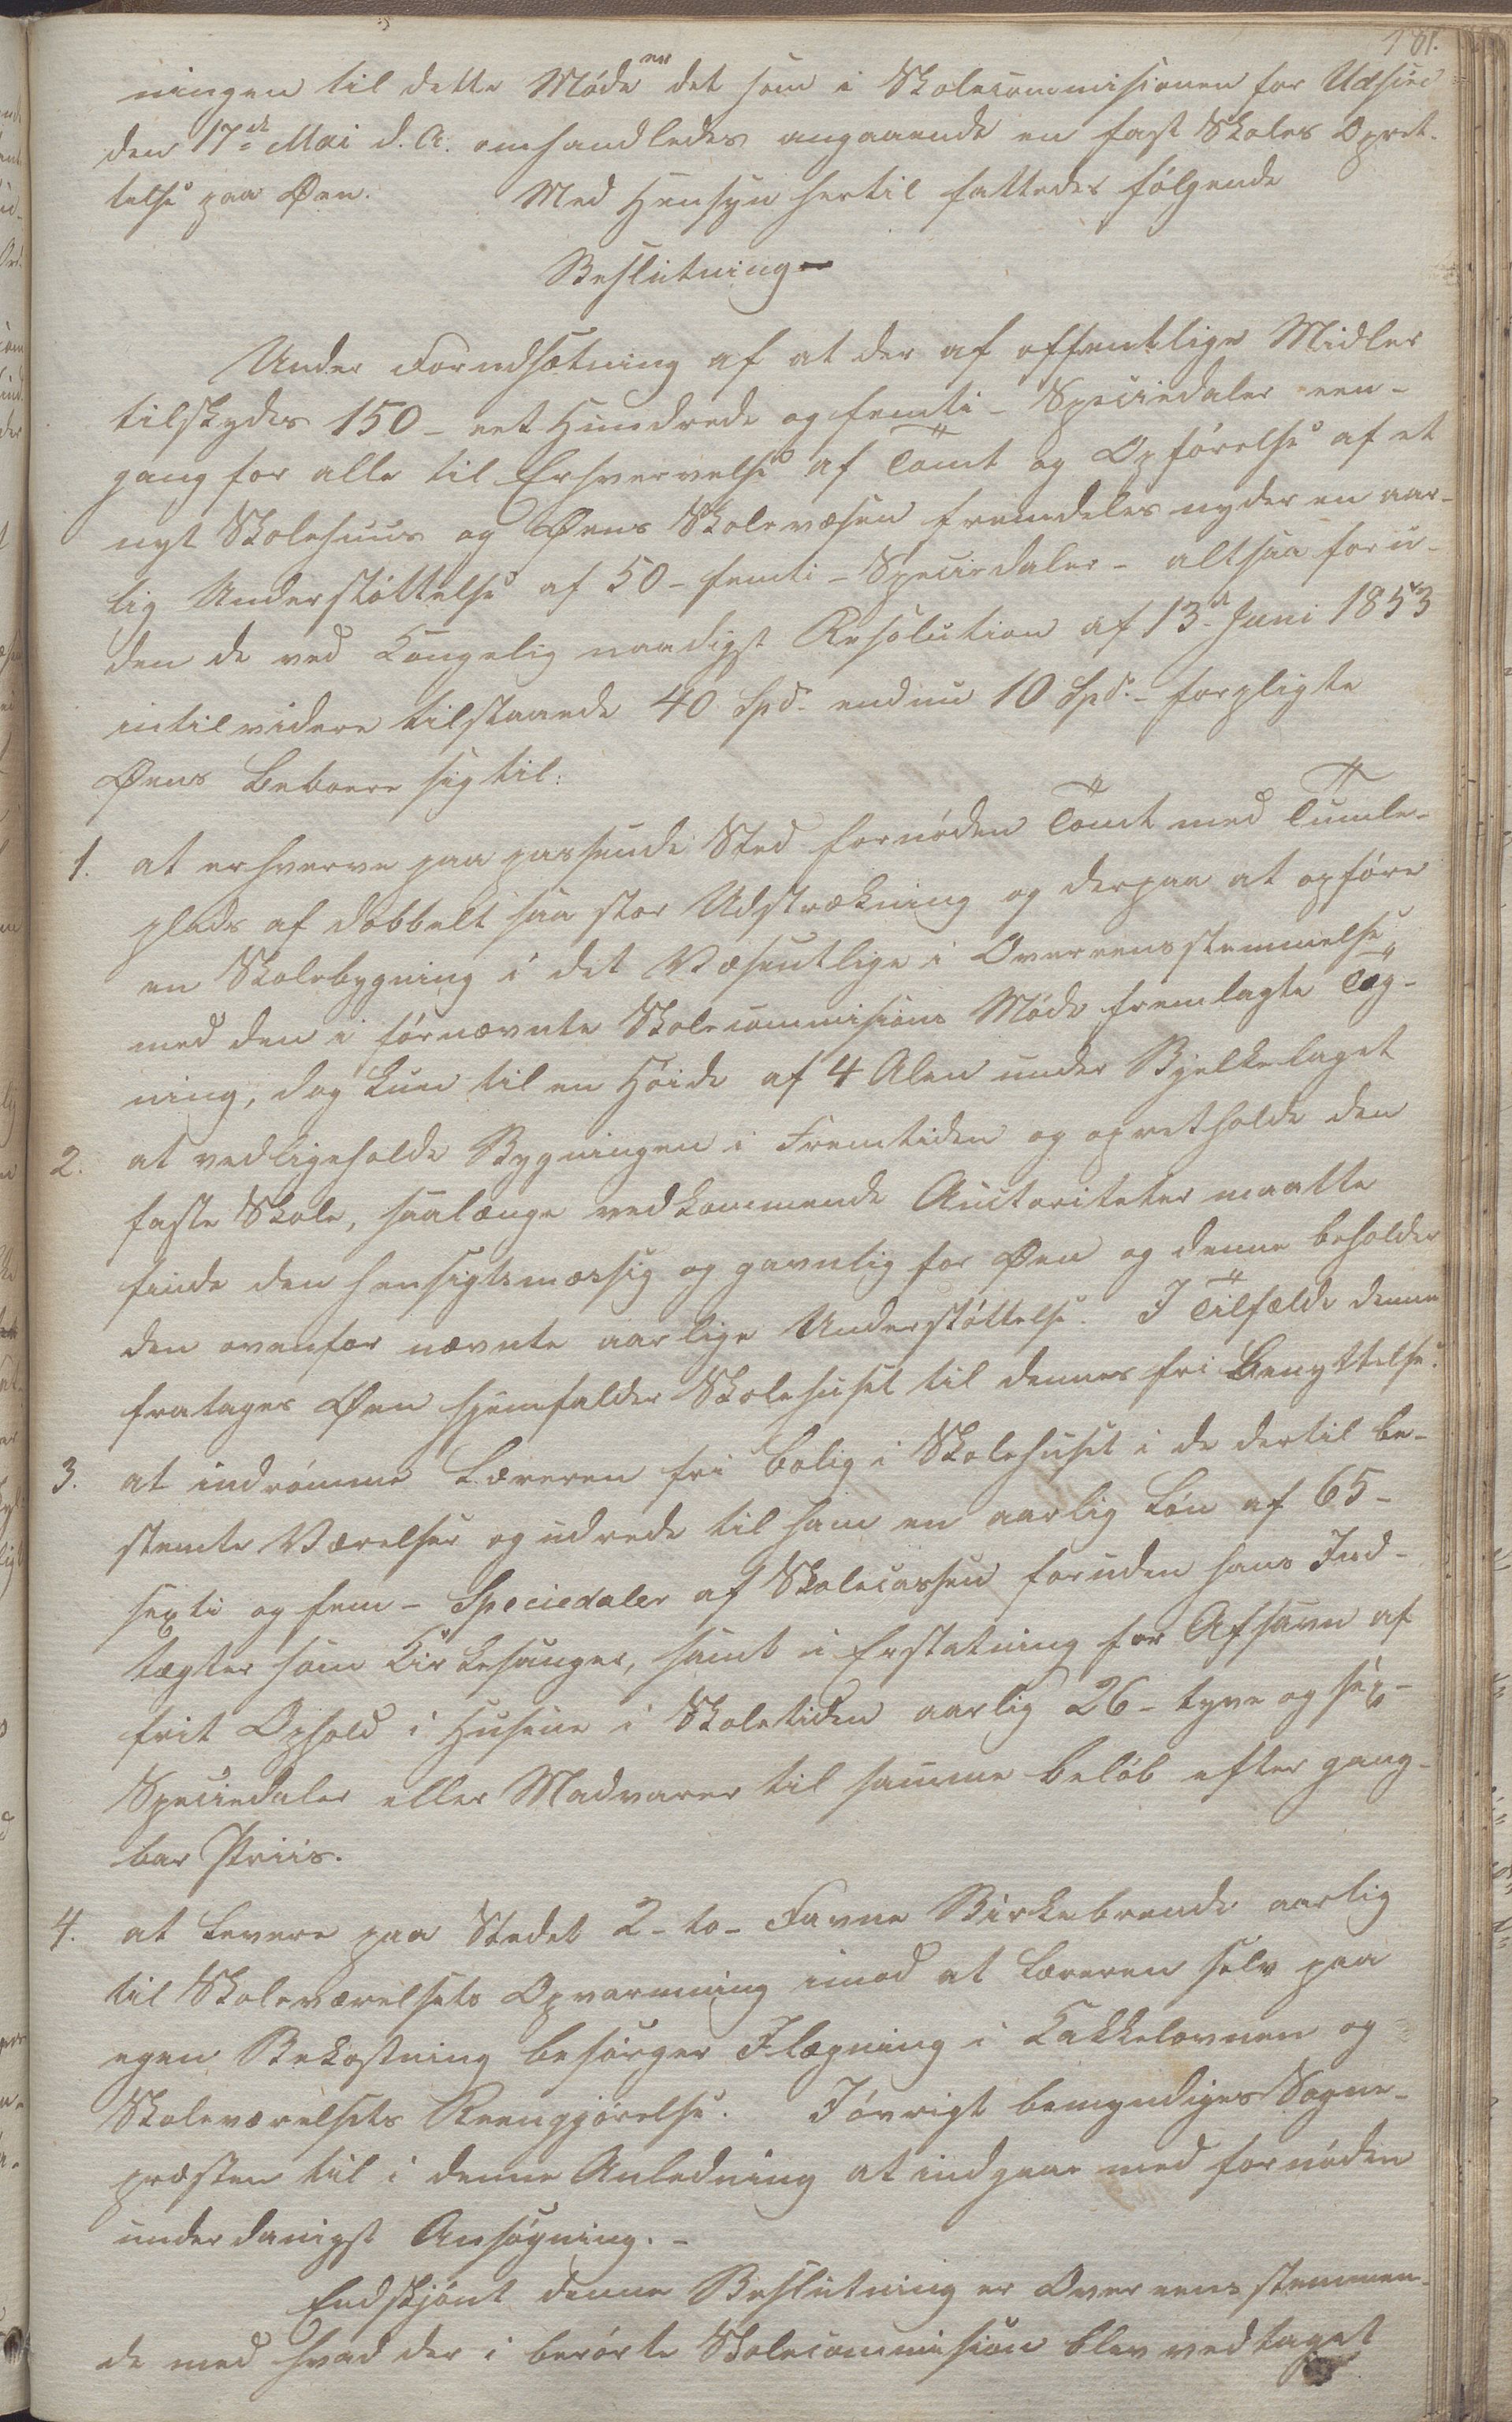 181.
ningen til dette Møde er det som i Skolecommisionen for Udsire
den 17de Mai d. A. omhandledes angaaende en fast Skoles Opret-
telse paa Øen. Med Hensyn hertil fattedes følgende
Beslutning
Under Forudsætning af at der af offentlige Midler
tilskydes 150 - eet Hundrede og femti - Speciedaler een-
gang for alle til Erhvervelse af Tomt og Opførelse af et
nyt Skolehuus og Øens Skolevæsen fremdeles nyder en aar-
lig Understøttelse af 50 - femti - Speciedaler - altsaa foru-
den de ved Kongelig naadigst Resolution af 13de Juni 1853
intil videre tilstaaede 40 Spd. endnu 10 Spd. - forpligte
Øens Beboere sig til:
1. at erhverve paa passende Sted fornøden Tomt med Tumle-
plads af dobbelt saa stor Udstrækning og derpaa at opføre
en Skolebygning i det Væsentlige i Overeensstemmelse
med den i førnævnte Skolecommisions Møde fremlagte Teg-
ning, dog kun til en Høide af 4 Alen under Bjelkelaget
2. at vedligeholde Bygningen i Fremtiden og opretholde den
faste Skole, saalænge vedkommende Auctoriteter maatte
finde den hensigtsmæssig og gavnlig for Øen og denne beholder
den ovenfor nævnte aarlige Understøttelse. I Tilfælde denne
fratages Øen hjemfalder Skolehuset til dennes fri Benyttelse.
3. at indrømme Læreren fri Bolig i Skolehuset i de dertil be-
stemte Værelser og udrede til ham en aarlig Løn af 65 -
sexti og fem - Speciedaler af Skolecassen foruden hans Ind-
tægter som Kirkesanger, samt i Erstatning for Afsavn af
frit Ophold i Husene i Skoletiden aarlig 26 - tyve og sex -
Speciedaler eller Madvarer til samme Beløb efter gang-
bar Priis.
4. at levere paa Stedet 2 - to - Favne Birkebrende aarlig
til Skoleværelsets Opvarmning imod at Læreren selv paa
egen Bekostning besørger Ilægning i Kakkelovnen og
Skoleværelsets Reengjørelse. Iøvrigt bemyndiges Sogne-
præsten til i denne Anledning at indgaae med fornøden
underdanigst Ansøgning. -
Endskjønt denne Beslutning er Overeensstemmen-
de med hvad der i berørte Skolecommision blev vedtaget